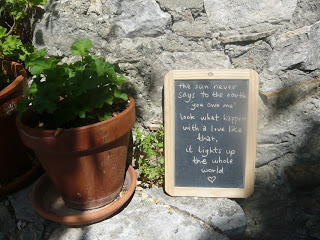 the sun never
says to the earth
'you owe me'
look what happens
with a love like
that,
it lights up
the whole
world